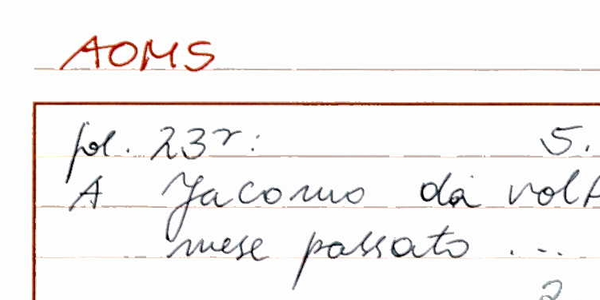 AOMS
fol. 23r: 5.
A Jacomo da volt
mese passato ...